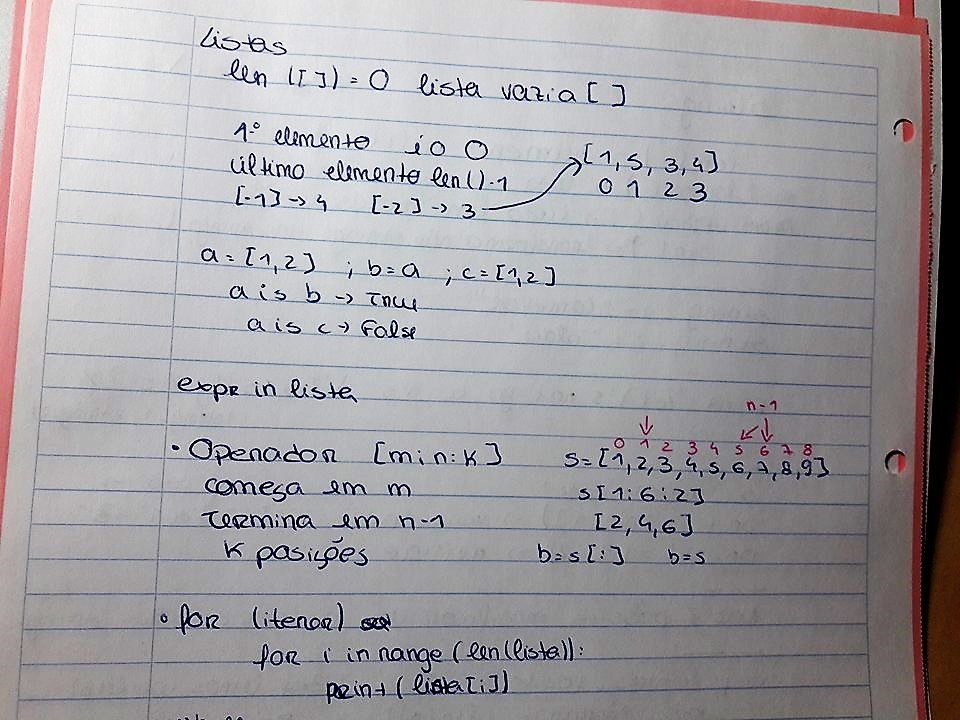 Listas
len ([]) = 0 lista vazia [ ]
1.º elemento é o 0
último elemento len()-1
[-1] → 4 [-2] → 3
[1, 5, 3, 4]
0 1 2 3
a = [1,2] ; b=a ; c=[1,2]
a is b → True
a is c → False
expr in lista
• Operador [m:n:k]
começa em m
Termina em n-1
k posições
n-1
0 1 2 3 4 5 6 7 8
s=[1,2,3,4,5,6,7,8,9]
s[1:6:2]
[2,4,6]
b=s[:] b=s
• for (iterar)
for i in range (len(lista)):
print (lista[i])